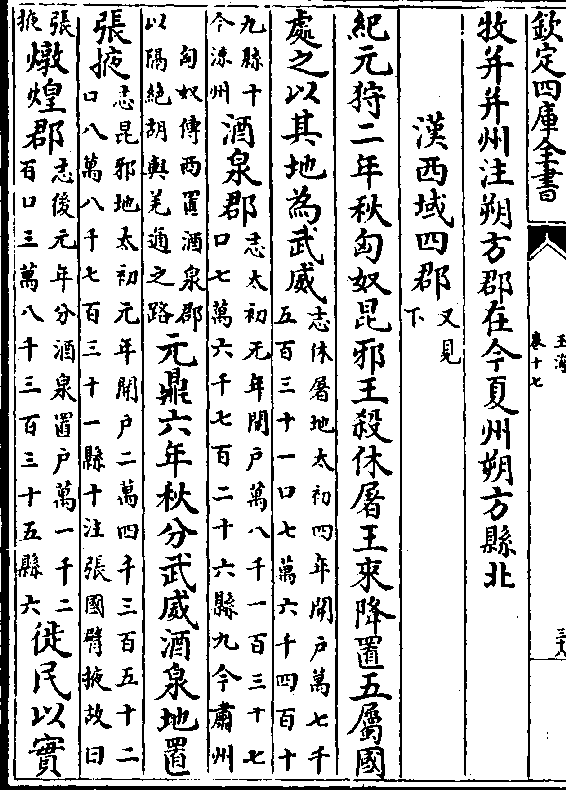 欽定四庫全書
玉海
卷十七
三十八
牧并并州注朔方郡在今夏州朔方縣北
漢西域四郡
又見
下
紀元狩二年秋匈奴昆邪王殺休屠王來降置五屬國
處之以其地為武威
志休屠地太初四年開戶萬七千
五百三十一口七萬六千四百十
九縣十
今涼州
酒泉郡
志太初元年開戶萬八千一百三十七
口七萬六千七百二十六縣九今肅州
匈奴傳西置酒泉郡
以隔絕胡與羌通之路
元鼎六年秋分武威酒泉地置
張掖
志昆邪地太初元年開戶二萬四千三百五十二
口八萬八千七百三十一縣十注張國臂掖故曰
張
掖
燉煌郡
志後元年分酒泉置戶萬一千二
百口三萬八千三百三十五縣六
徙民以實